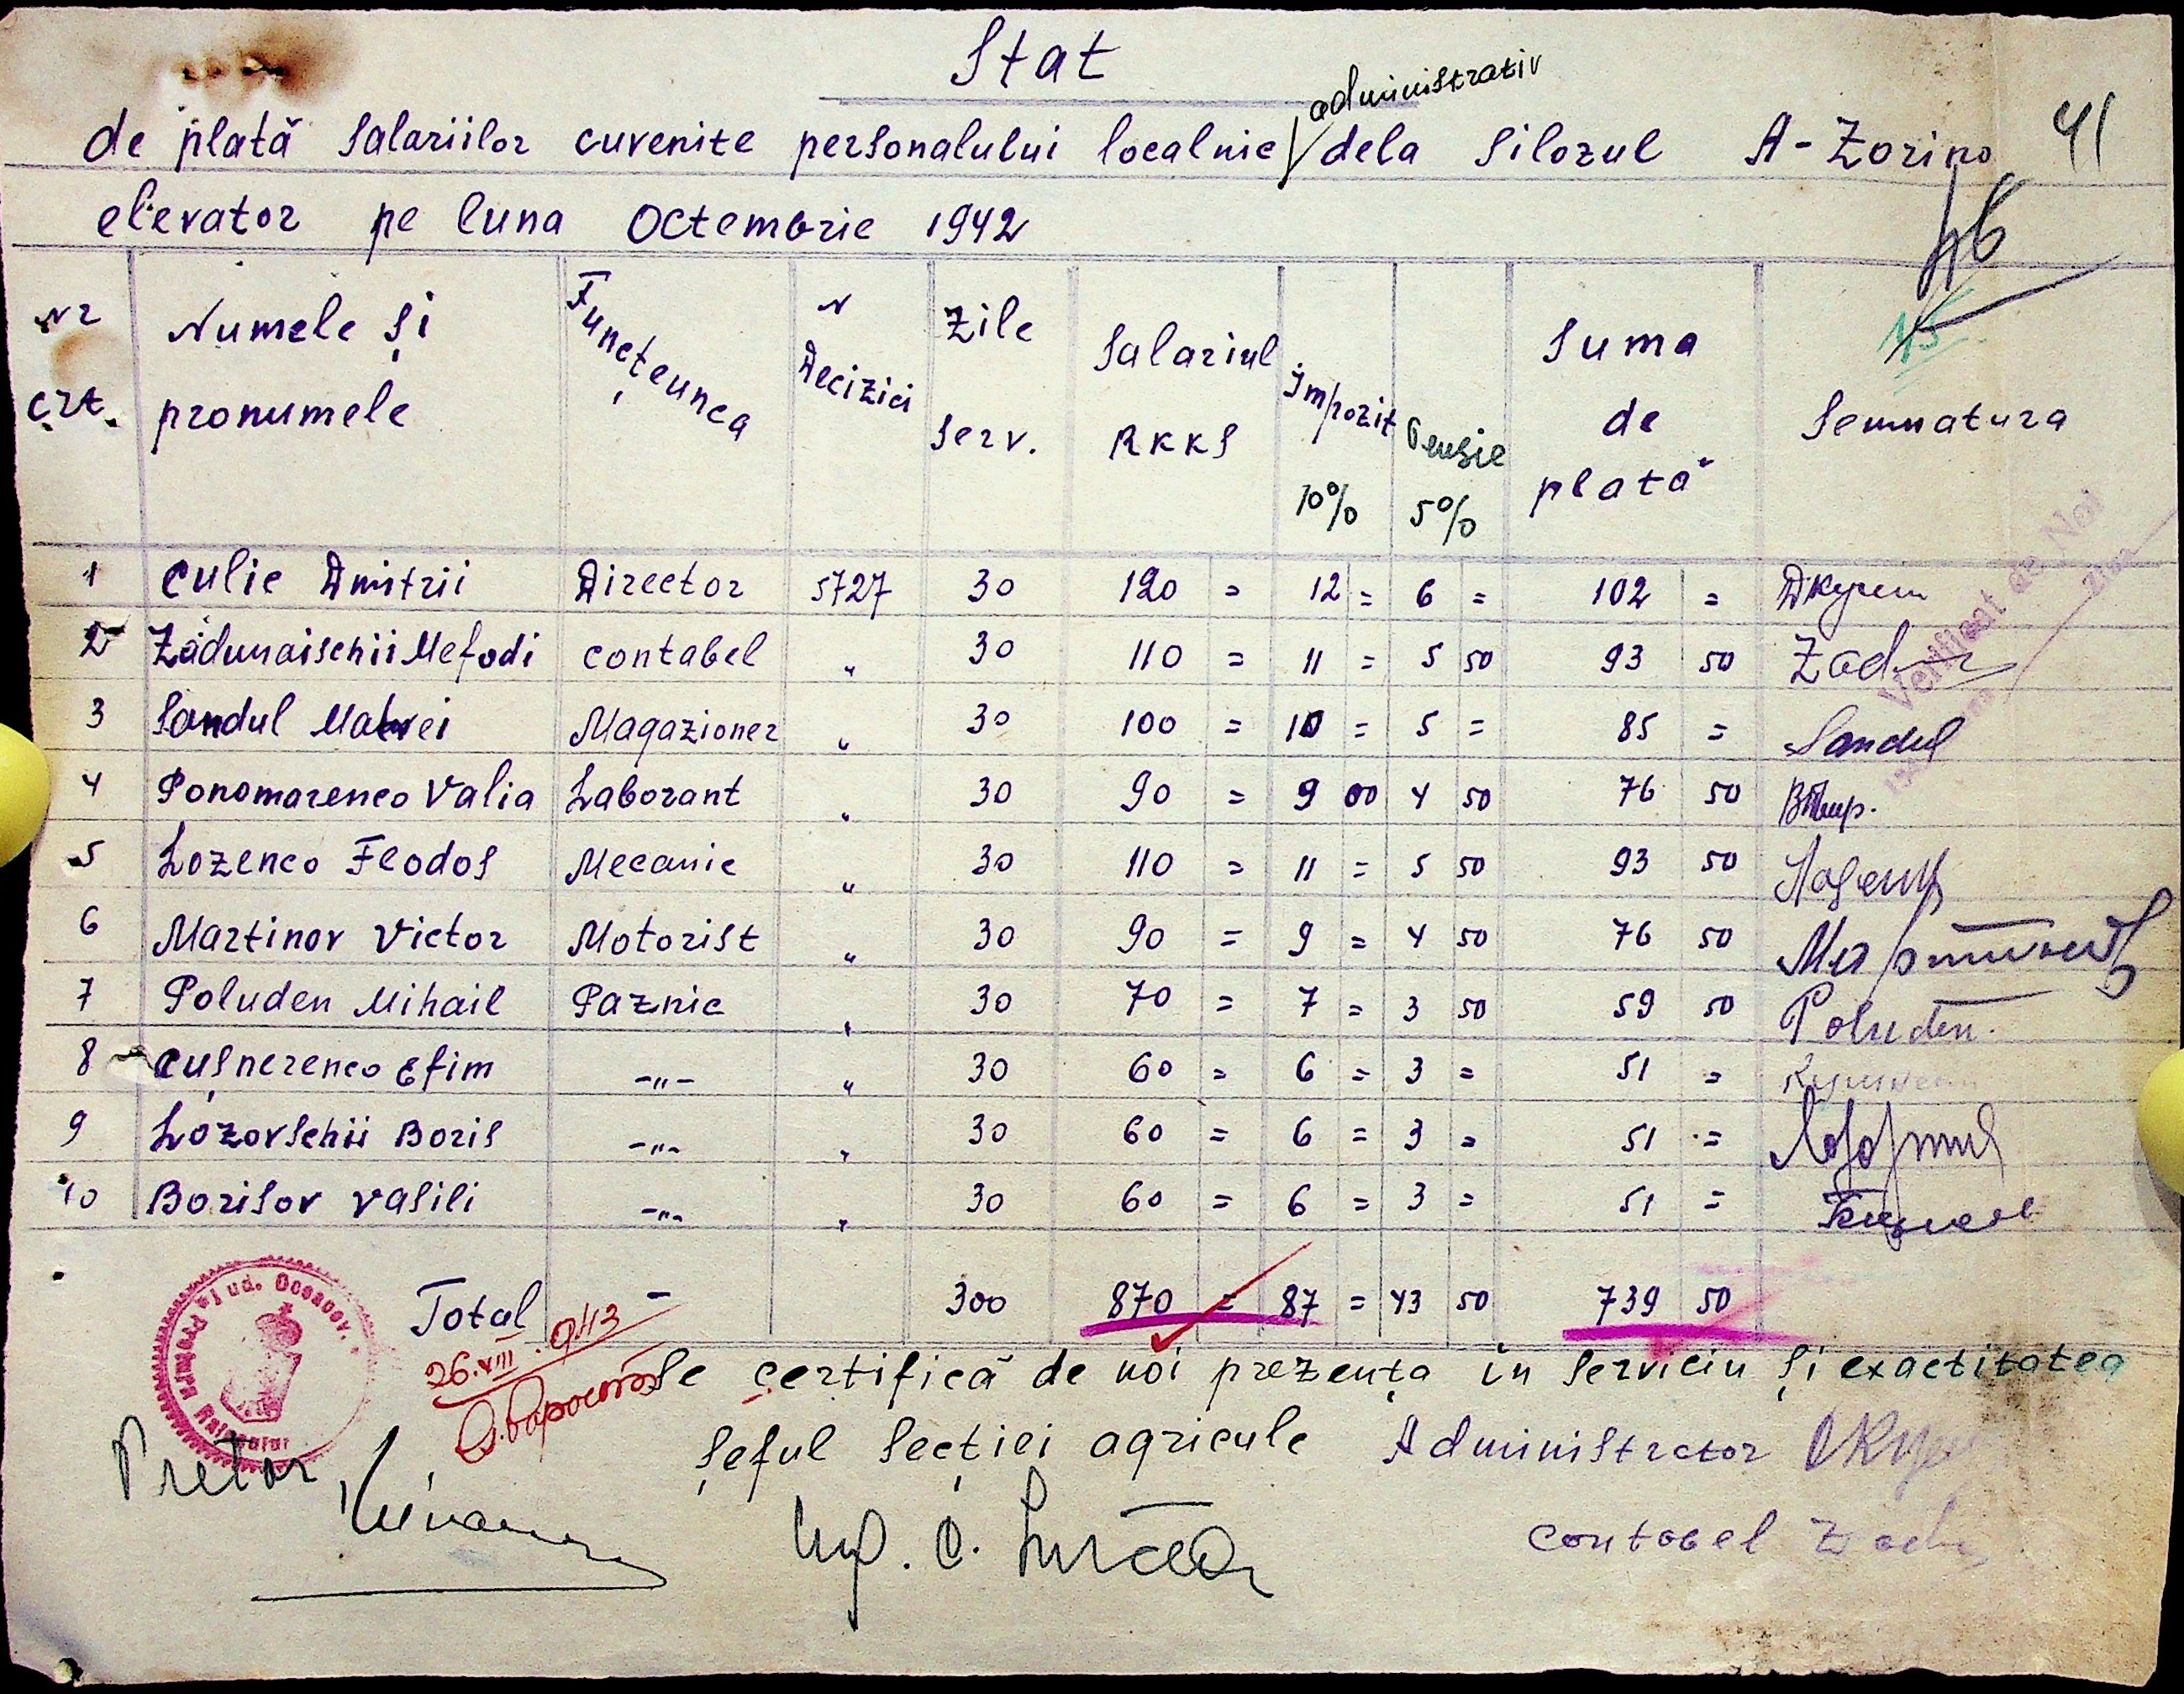 Stat
administrativ
de plată salariilor cuvenite personalului localnic dela silozul A-Zorino 41
elevator pe luna Octembrie 1942
46
15
Nr crt. Numele și pronumele Funcțeunea N Decizici Zile serv. Salariul RKKS Impozit 10% Pensie 5% Suma de plată Semnatura
Verificat de Noi
1 Culic Dmitrii Director 5727 30 120 = 12 = 6 = 102 =
2 Zadunaischii Mefodi contabel " 30 110 = 11 = 5 50 93 50 Zad
3 Sandul Matvei Magazioner " 30 100 = 10 = 5 = 85 = Sandul
4 Ponomarenco Valia Laborant " 30 90 = 9 00 4 50 76 50
5 Lozenco Feodos Mecanic " 30 110 = 11 = 5 50 93 50
6 Martinov Victor Motorist " 30 90 = 9 = 4 50 76 50
7 Poluden Mihail Paznic " 30 70 = 7 = 3 50 59 50 Poluden.
8 Cușnerenco Efim -"- " 30 60 = 6 = 3 = 51 =
9 Lozovschii Boris -"- " 30 60 = 6 = 3 = 51 =
10 Borisov Vasili -"- " 30 60 = 6 = 3 = 51 =
Total - 300 870 = 87 = 43 50 739 50
26.VIII.943
Se certifică de noi prezența in serviciu și exactitatea
Pretor, șeful secției agricule Administrator
contabel Zad